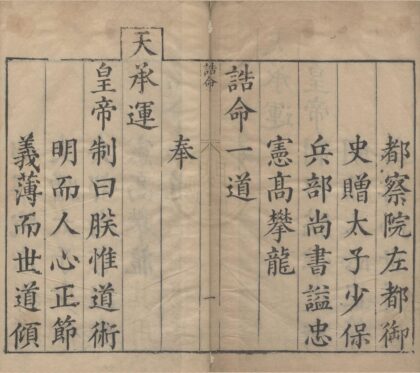 都察院左都御
史贈太子少保
兵部尚書謚忠
憲高攀龍
誥命一道
誥命
一
奉
天承運
皇帝制曰朕惟道術
明而人心正節
義薄而世道傾